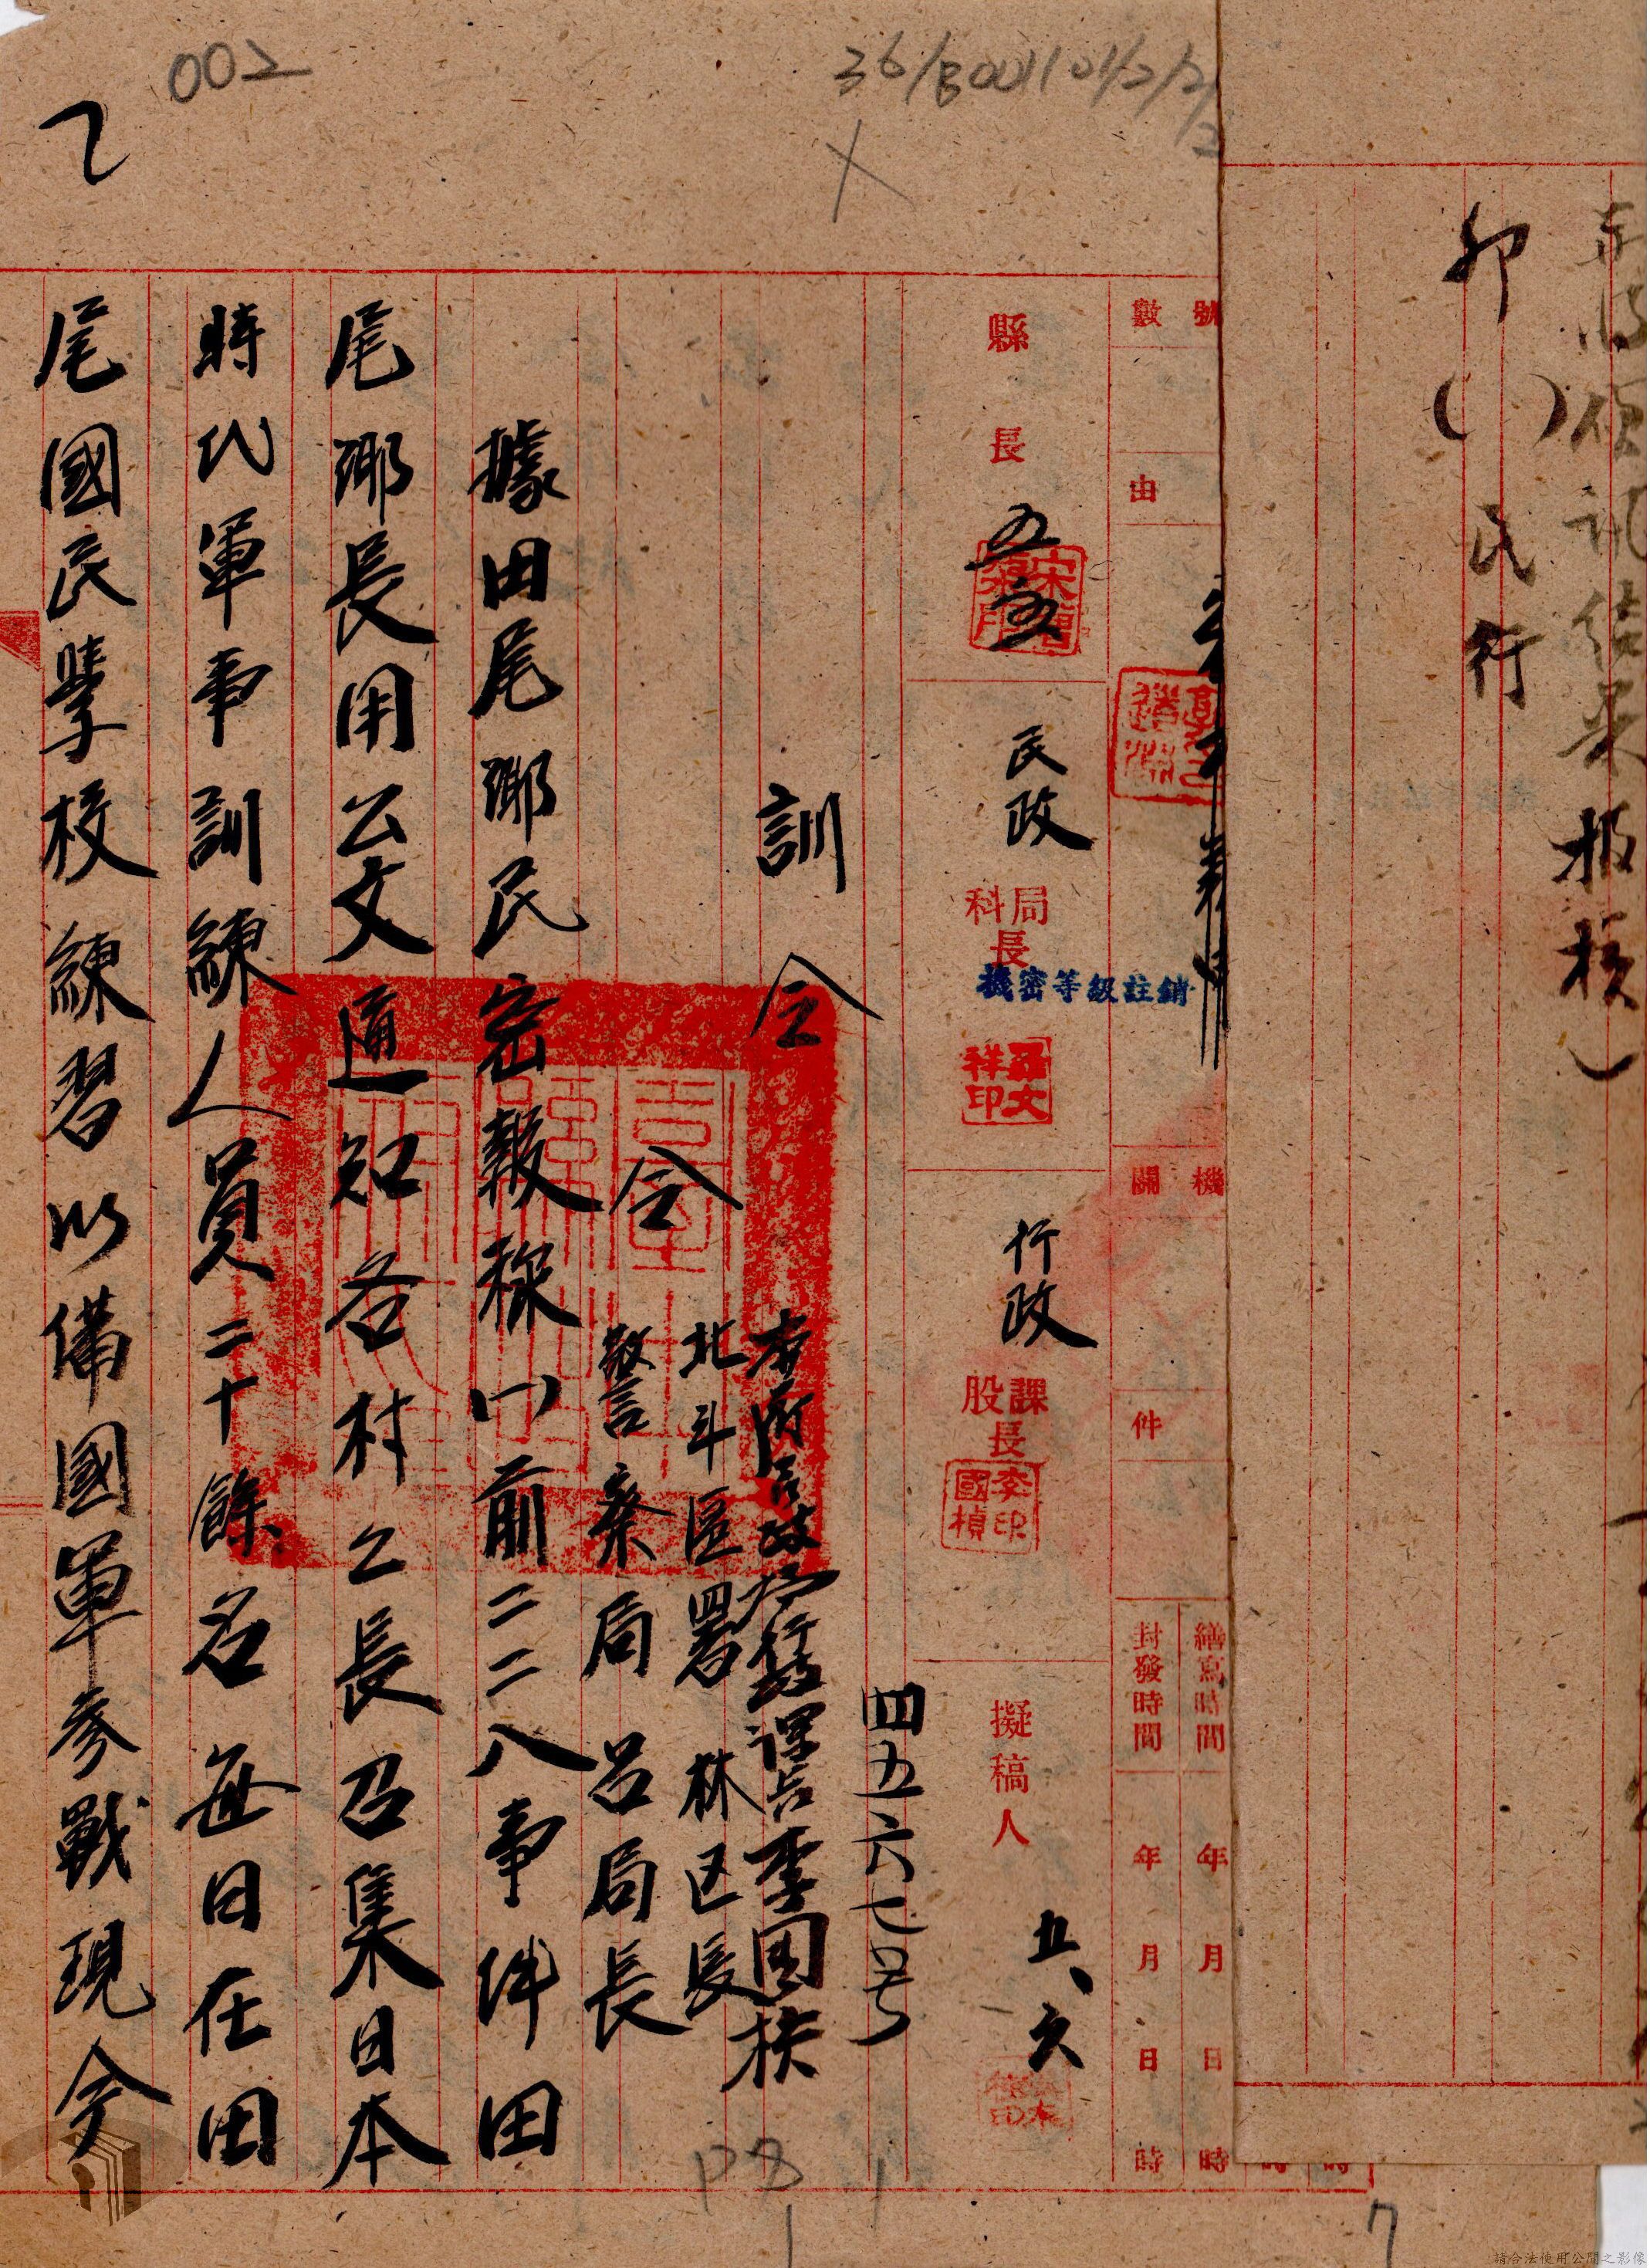 002
36/B001101/2/2/2
卯( )民行
報核)
號數
由
機關
件
繕寫時間 年 月 日 時
封發時間 年 月 日 時
縣長 五五
民政 局科長
機密等級註銷
羅文祥印
行政 課股長
李國楨印
擬稿人 五、六
四五六七号
訓令
令 本府民政局行政課長李國楨
北斗區署林区長
警察局呂局長
據田尾鄉民密報稱(一)前二二八事件田
尾鄉長用公文通知各村々長召集日本
時代軍事訓練人員二十餘名每日在田
尾國民學校練習以備國軍參戰現今
P8
7
請合法使用公開之影像